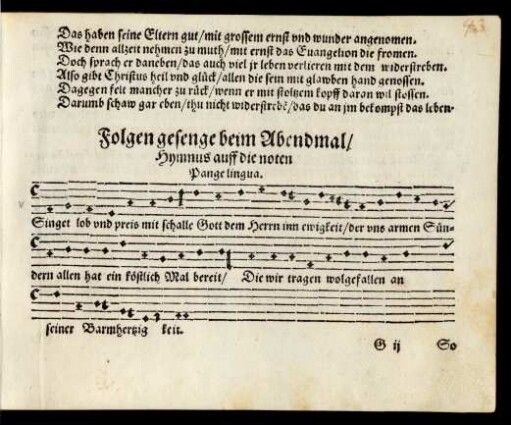 Das haben seine Eltern gut/mit grossem ernst vnd wunder angenomen.
Wie denn allzeit nehmen zu muth/mit ernst das Euangelion die fromen.
Doch sprach er daneben/das auch viel jr leben verlieren mit dem widerstreben.
Also gibt Christus heil vnd glück/allen die sein mit glawben hand genossen.
Dagegen felt mancher zu rück/wenn er mit stoltzem kopff daran wil stossen.
Darumb schaw gar eben/thu nicht widerstrebē/das du an jm bekompst das leben.
Folgen gesenge beim Abendmal/
Hymnus auff die noten
Pange lingua.
Singet lob vnd preis mit schalle Gott dem Herrn inn ewigkeit/der vns armen Sün-
dern allen hat ein köstlich Mal bereit/ Die wir tragen wolgefallen an
seiner Barmhertzig keit.
G ij So